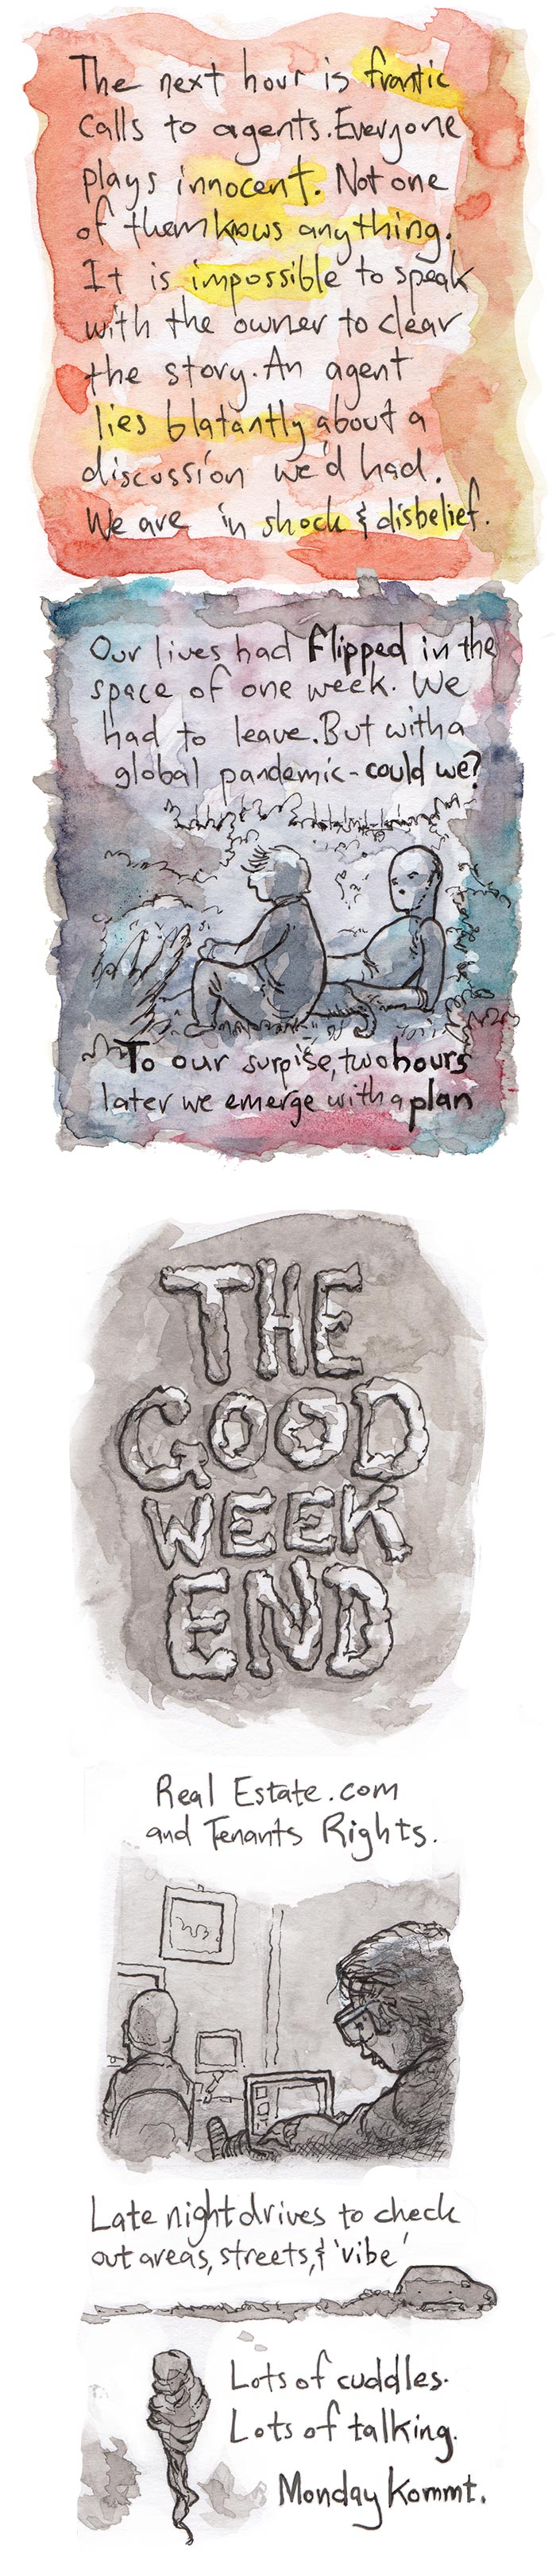 The next hour is frantic
calls to agents. Everyone
plays innocent. Not one
of them knows anything.
It is impossible to speak
with the owner to clear
the story. An agent
lies blatantly about a
discussion we'd had.
We are in shock & disbelief.
Our lives had flipped in the
space of one week. We
had to leave. But with a
global pandemic - could we?
To our surpise, two hours
later we emerge with a plan
THE
GOOD
WEEK
END
Real Estate.com
and Tenants Rights.
Late night drives to check
out areas, streets, & 'vibe'
Lots of cuddles.
Lots of talking.
Monday Kommt.